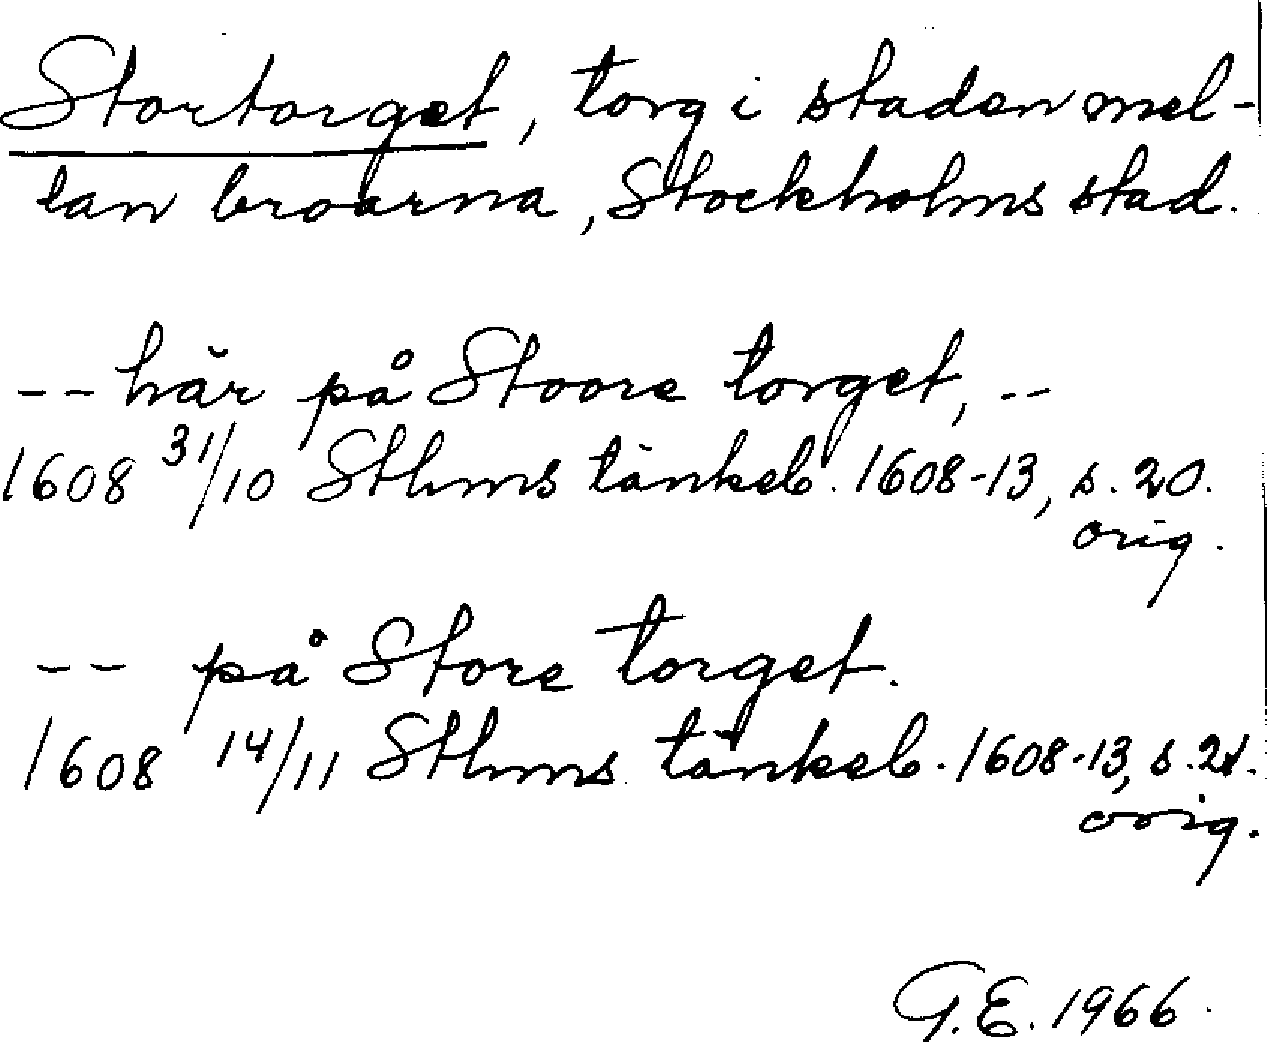 Stortorget, torg i staden mel-
lan broarna, Stockholms stad.
-- här på Stoore torget, --
1608 31/10 Sthms tänkeb. 1608-13, s. 20.
orig.
-- på Store torget.
1608 14/11 Sthms tänkeb. 1608-13, s.
orig.
G.E. 1966.